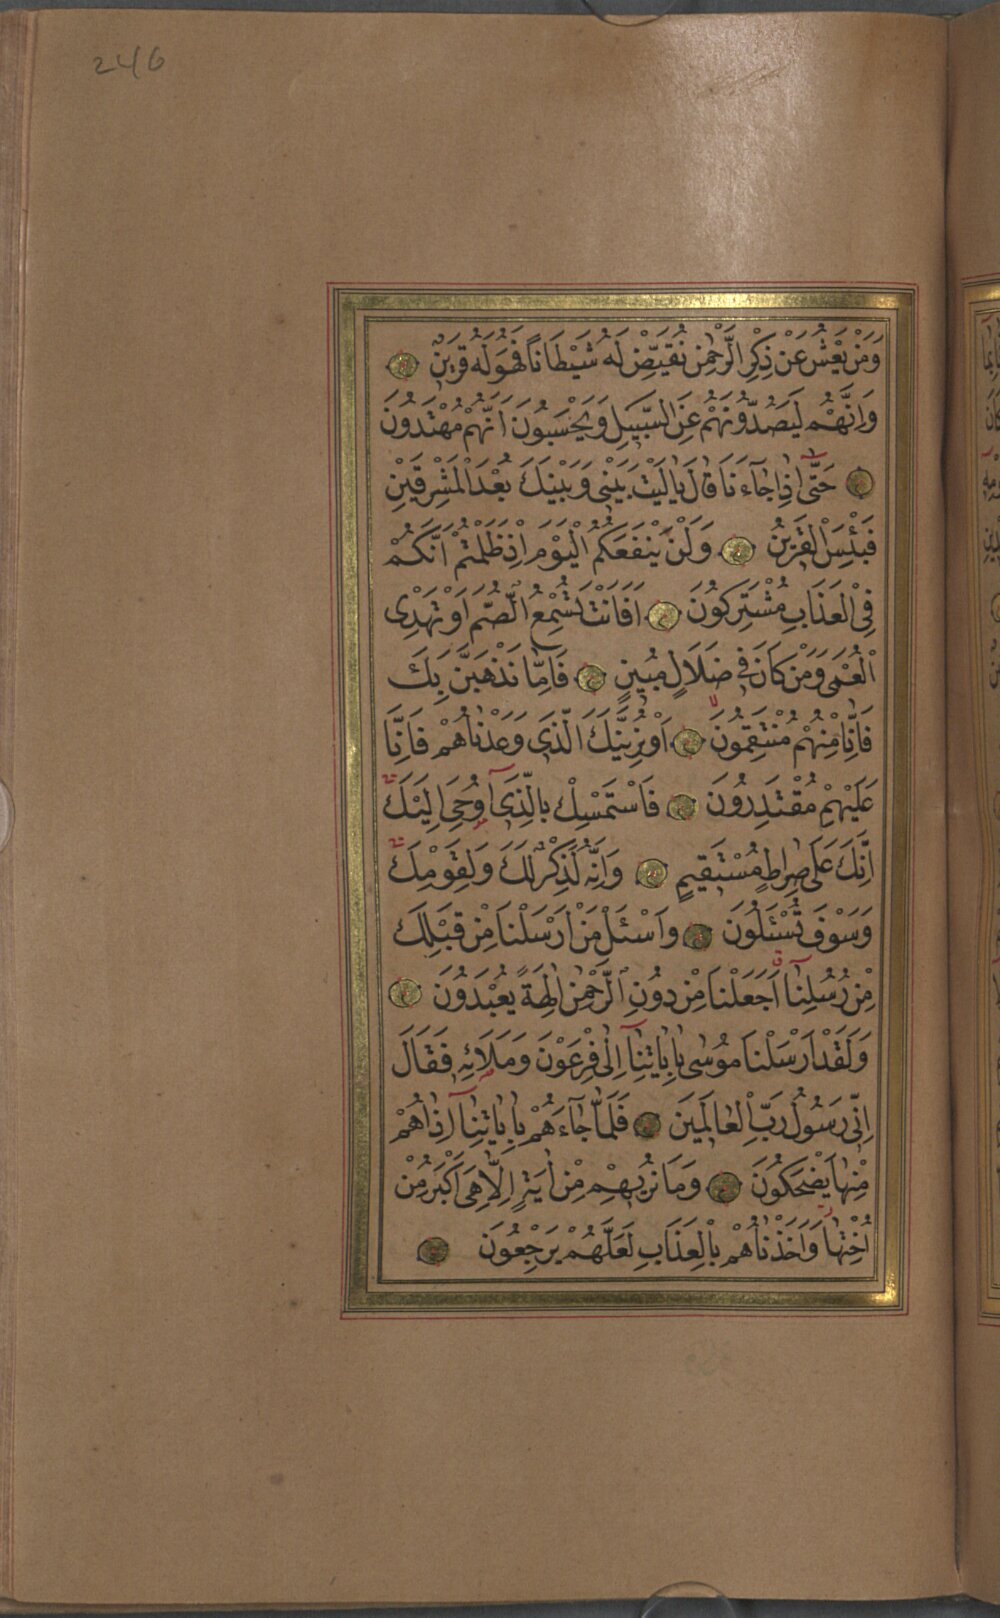 246
وَمَنْ يَعْشُ عَنْ ذِكْرِ الرَّحْمٰنِ نُقَيِّضْ لَهُ شَيْطَاناً فَهُوَ لَهُ قَرِينٌ
وَاِنَّهُمْ لَيَصُدُّونَهُمْ عَنِ السَّبِيلِ وَيَحْسَبُونَ اَنَّهُمْ مُهْتَدُونَ
حَتّٰٓى اِذَا جَٓاءَنَا قَالَ يَالَيْتَ بَيْنِى وَبَيْنَكَ بُعْدَ الْمَشْرِقَيْنِ
فَبِئْسَ الْقَرِينُ وَلَنْ يَنْفَعَكُمُ الْيَوْمَ اِذْ ظَلَمْتُمْ اَنَّكُمْ
فِى الْعَذَابِ مُشْتَرِكُونَ اَفَاَنْتَ تُسْمِعُ الصُّمَّ اَوْ تَهْدِى
الْعُمْىَ وَمَنْ كَانَ فِى ضَلَالٍ مُبِينٍ فَاِمَّا نَذْهَبَنَّ بِكَ
فَاِنَّا مِنْهُمْ مُنْتَقِمُونَ اَوْ نُرِيَنَّكَ الَّذِى وَعَدْنَاهُمْ فَاِنَّا
عَلَيْهِمْ مُقْتَدِرُونَ فَاسْتَمْسِكْ بِالَّذِٓى اُوحِىَ اِلَيْكَ
اِنَّكَ عَلٰى صِرَاطٍ مُسْتَقِيمٍ وَاِنَّهُ لَذِكْرٌ لَكَ وَلِقَوْمِكَ
وَسَوْفَ تُسْئَلُونَ وَاسْئَلْ مَنْ اَرْسَلْنَا مِنْ قَبْلِكَ
مِنْ رُسُلِنَٓا اَجَعَلْنَا مِنْ دُونِ الرَّحْمٰنِ اٰلِهَةً يُعْبَدُونَ
وَلَقَدْ اَرْسَلْنَا مُوسٰى بِاٰيَاتِنَٓا اِلٰى فِرْعَوْنَ وَمَلَائِهِ فَقَالَ
اِنِّى رَسُولُ رَبِّ الْعَالَمِينَ فَلَمَّا جَٓاءَهُمْ بِاٰيَاتِنَٓا اِذَا هُمْ
مِنْهَا يَضْحَكُونَ وَمَا نُرِيهِمْ مِنْ اٰيَةٍ اِلَّا هِىَ اَكْبَرُ مِنْ
اُخْتِهَا وَاَخَذْنَاهُمْ بِالْعَذَابِ لَعَلَّهُمْ يَرْجِعُونَ